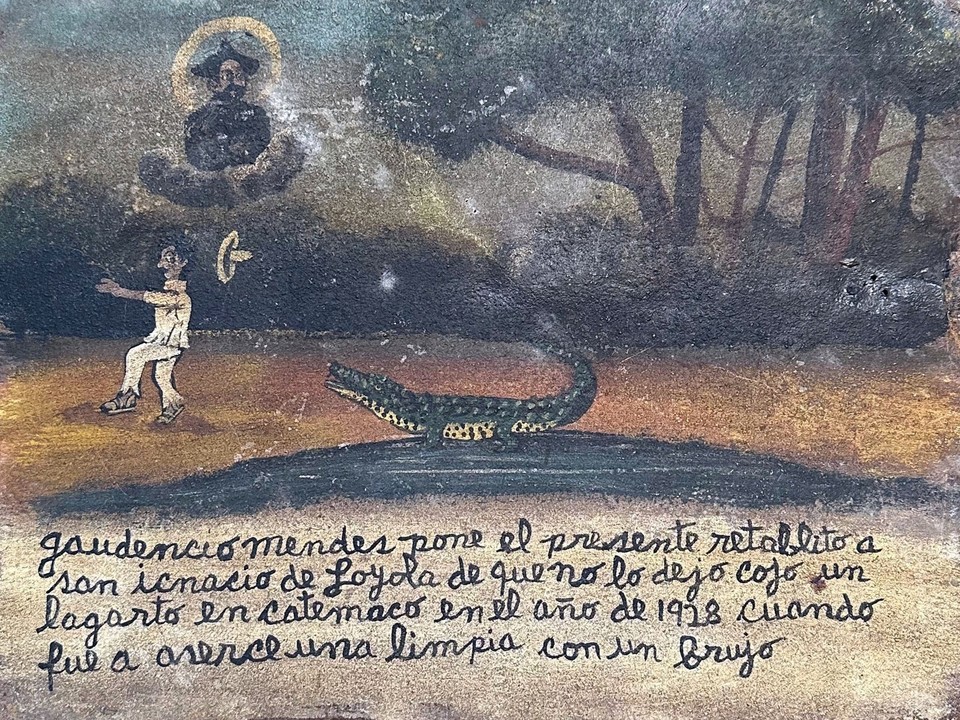 gaudencio mendes pone el presente retablito a
san icnacio de Loyola de que no lo dejo cojo un
lagarto en catemaco en el año de 1928 cuando
fue a aserce una limpia con un brujo